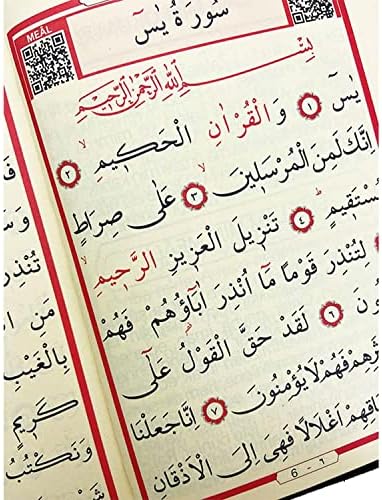 MEAL
سُورَةُ يٰسٓ
بِسْمِ اللّٰهِ الرَّحْمٰنِ الرَّحِيمِ
يٰسٓ ﴿١﴾ وَالْقُرْاٰنِ الْحَكِيمِ ﴿٢﴾
اِنَّكَ لَمِنَ الْمُرْسَلِينَ ﴿٣﴾ عَلٰى صِرَاطٍ
سْتَقِيمٍ ﴿٤﴾ تَنْزِيلَ الْعَزِيزِ الرَّحِيمِ
لِتُنْذِرَ قَوْمًا مَٓا اُنْذِرَ اٰبَٓاؤُهُمْ فَهُمْ
ونَ ﴿٦﴾ لَقَدْ حَقَّ الْقَوْلُ عَلٰٓى
ثَرِهِمْ فَهُمْ لَا يُؤْمِنُونَ ﴿٧﴾ اِنَّا جَعَلْنَا
نَاقِهِمْ اَغْلَالًا فَهِىَ اِلَى الْاَذْقَانِ
6 - ٦
تُنْذِرُ
مَنِ
بِالْغَيْبِ
كَرِيمٍ
وَنَكْتُبُ